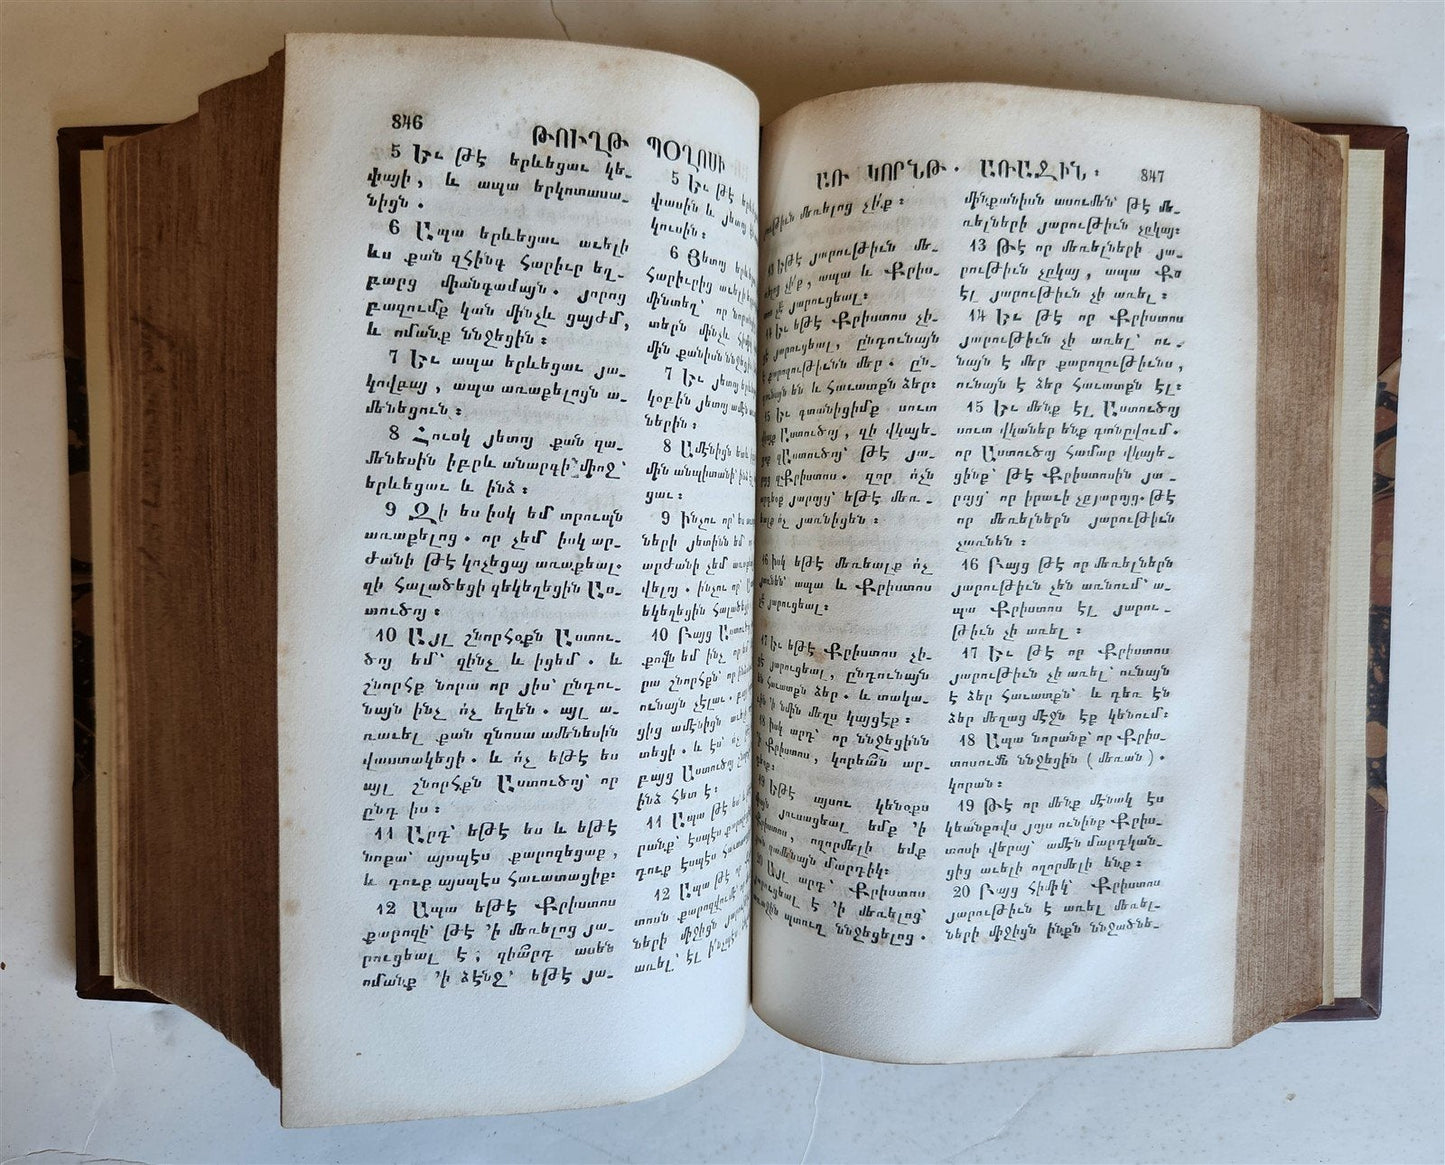 846
ԹՈՒՂԹ ՊՕՂՈՍԻ
5 Եւ թէ երևեցաւ կե֊
փայի, և ապա երկոտասա֊
նիցն .
6 Ապա երևեցաւ աւելի
ևս քան զհինգ հարիւր եղ֊
բարց միանգամայն . յորոց
բազումք կան մինչև ցայժմ,
և ոմանք ննջեցին ։
7 Եւ ապա երևեցաւ յա֊
կովբայ, ապա առաքելոցն ա֊
մենեցուն ։
8 Հուսկ յետոյ քան զա֊
մենեսին իբրև անարգի միոջ՝
երևեցաւ և ինձ ։
9 Զի ես իսկ եմ տրուպն
առաքելոց . որ չեմ իսկ ար֊
ժանի թէ կոչեցայ առաքեալ.
զի հալածեցի զեկեղեցին Աս֊
տուծոյ ։
10 Այլ շնորհօքն Աստու֊
ծոյ եմ՝ զինչ և իցեմ . և
շնորհք նորա որ յիս՝ ընդու֊
նայն ինչ ո՛չ եղեն . այլ ա֊
ռաւել քան զնոսա ամենեսին
վաստակեցի . և ո՛չ եթէ ես
այլ շնորհքն Աստուծոյ՝ որ
ընդ իս ։
11 Արդ՝ եթէ ես և եթէ
նոքա՝ այսպէս քարոզեցաք,
և դուք այսպէս հաւատացիք։
12 Ապա եթէ Քրիստոս
քարոզի՝ թէ ՚ի մեռելոց յա֊
րուցեալ է, զի՞արդ ասեն
ոմանք ՚ի ձէնջ՝ եթէ յա֊
5 Եւ թէ
փասին և յետոյ
կուսին ։
6 Յետոյ
հարիւրից աւելի
մինտեղ՝ որ
տերն մինչև
մին քանիսն
7 Եւ յետոյ
կօբին յետոյ
ներին ։
8 Ամէնիցն
մին անպիտանի՝
ցաւ ։
9 Ինչու որ՝
ների յետինն եմ
արժանի չեմ
վելոյ . ինչու որ՝
եկեղեցին
10 Բայց
քովն եմ ինչ որ
րա շնորհքն՝ որ
ունայն չէլաւ .
ցից ամէնիցն
տեցի . և ես՝ ո՛չ
բայց Աստուծոյ
ինձ հետ է ։
11 Ապա թէ ես
րանք՝ էսպէս
դուք էսպէս
12 Ապա թէ որ՝
տոսն քարոզվում՝
ների միջիցն
առել՝ էլ
ԱՌ ԿՈՐՆԹ . ԱՌԱՋԻՆ ։
847
մեռելոց չի՛ք ։
13 Եթէ յարութիւն մե֊
չի՛ք, ապա և Քրիս֊
չէ յարուցեալ ։
14 Եւ եթէ Քրիստոս չի֊
յարուցեալ, ընդունայն
քարոզութիւնն մեր . ըն֊
են և հաւատքն ձեր։
15 Եւ գտանիցիմք սուտ
Աստուծոյ, զի վկայե֊
զԱստուծոյ՝ թէ յա֊
զՔրիստոս . զոր ո՛չն
յարոյց՝ եթէ մեռ֊
ո՛չ յառնիցեն ։
16 Իսկ եթէ մեռեալք ո՛չ
ապա և Քրիստոս
չէ՛ յարուցեալ։
17 Եւ եթէ Քրիստոս չի֊
յարուցեալ, ընդունայն
են հաւատքն ձեր . և տակա֊
՚ի նմին մեղս կայցէք ։
18 Իսկ արդ՝ որ ննջեցինն
՚ի Քրիստոս, կորեա՞ն ար֊
19 Եթէ այսու կենօքս
յուսացեալ եմք ՚ի
ողորմելի եմք
զամենայն մարդիկ։
20 Այլ արդ՝ Քրիստոս
է ՚ի մեռելոց՝
պտուղ ննջեցելոց .
մինքանիսն ասումեն՝ թէ մե֊
ռելների յարութիւն չըկայ։
13 Թէ որ մեռելների յա֊
րութիւն չըկայ, ապա Քս
էլ յարութիւն չի առել ։
14 Եւ թէ որ Քրիստոս
յարութիւն չի առել՝ ու֊
նայն է մեր քարոզութիւնս,
ունայն է ձեր հաւատքն էլ։
15 Եւ մենք էլ Աստուծոյ
սուտ վկաներ ենք գտնըվում .
որ Աստուծոյ համար վկայե֊
ցինք՝ թէ Քրիստոսին յա֊
րոյց՝ որ իրաւի չըյարոյց. թէ
որ մեռելներն յարութիւն
չառնեն ։
16 Բայց թէ որ մեռելներն
յարութիւն չեն առնում՝ ա֊
պա Քրիստոս էլ յարու֊
թիւն չի առել ։
17 Եւ թէ որ Քրիստոս
յարութիւն չի առել՝ ունայն
է ձեր հաւատքն՝ և դեռ էն
ձեր մեղաց մէջն էք կենում։
18 Ապա նորանք՝ որ Քրիս֊
տոսում ննջեցին ( մեռան ) .
կորան։
19 Թէ որ մենք մէնակ էս
կեանքովս յոյս ունինք Քրիս֊
տոսի վերայ՝ ամէն մարդկան֊
ցից աւելի ողորմելի ենք ։
20 Բայց հիմիկ՝ Քրիստոս
յարութիւն է առել մեռել֊
ների միջիցն ինքն ննջածնե֊